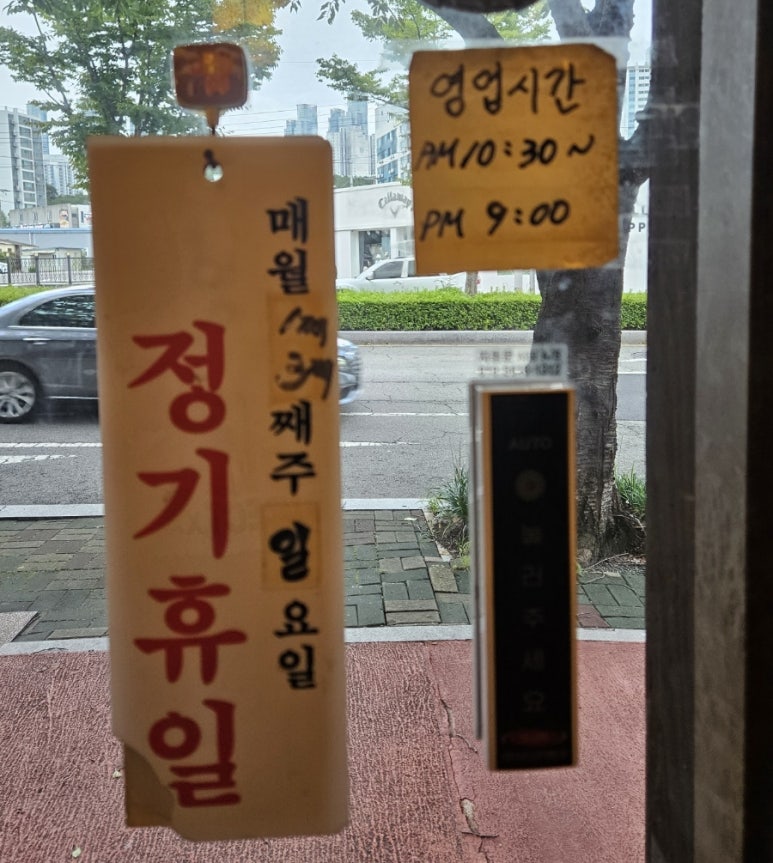 매월
3째주
일요일
정기휴일
영업시간
AM 10:30 ~
PM 9:00
Callaway
AUTO
눌러주세요